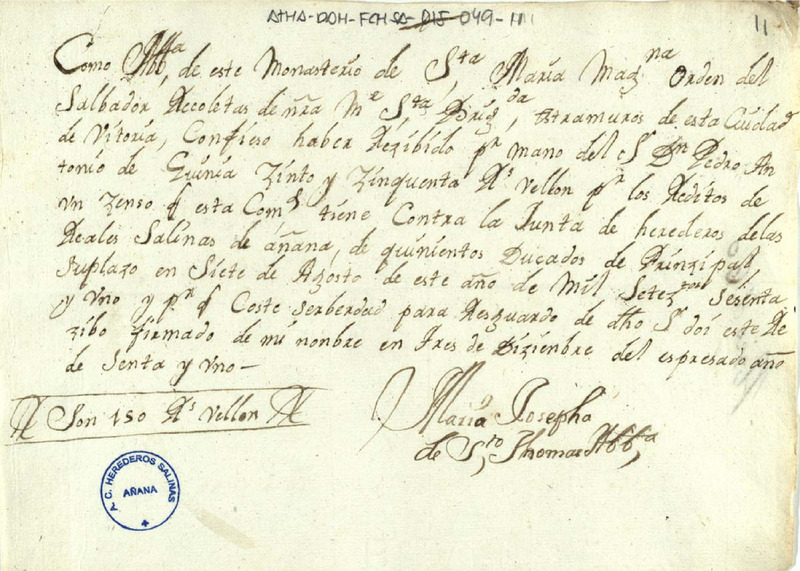 ATHA-DOH-FCHSA-DIF-049-111
11
Como Abb.ª, de este Monasterio de S.ta María Mag.na Orden del
Salbador Recoletas de ñra M.e S.ta Brig.da, Extramuros de esta Ciudad
de Vitoria, Confieso haber Rezibido p.r mano del S.r D.n Pedro An
tonio de Guinia Zinto y Zinquenta R.s Vellon p.r los Reditos de
Vn Zenso q esta Com.d tiene Contra la Junta de herederos delas
Reales Salinas de añana, de quinientos Ducados de Prinzipal,
Suplazo en Siete de Agosto de este año de Mil Setez.tos Sesenta
y Vno y p.r q Coste serberdad para Resguardo de dho S.r doi este Re
zibo firmado de mi nombre en Tres de Dizienbre del espresado año
de Senta y Vno-
Son 150 R.s Vellon
Maria Josepha
de S.to Thomas Abb.ª
A.C. HEREDEROS SALINAS
AÑANA